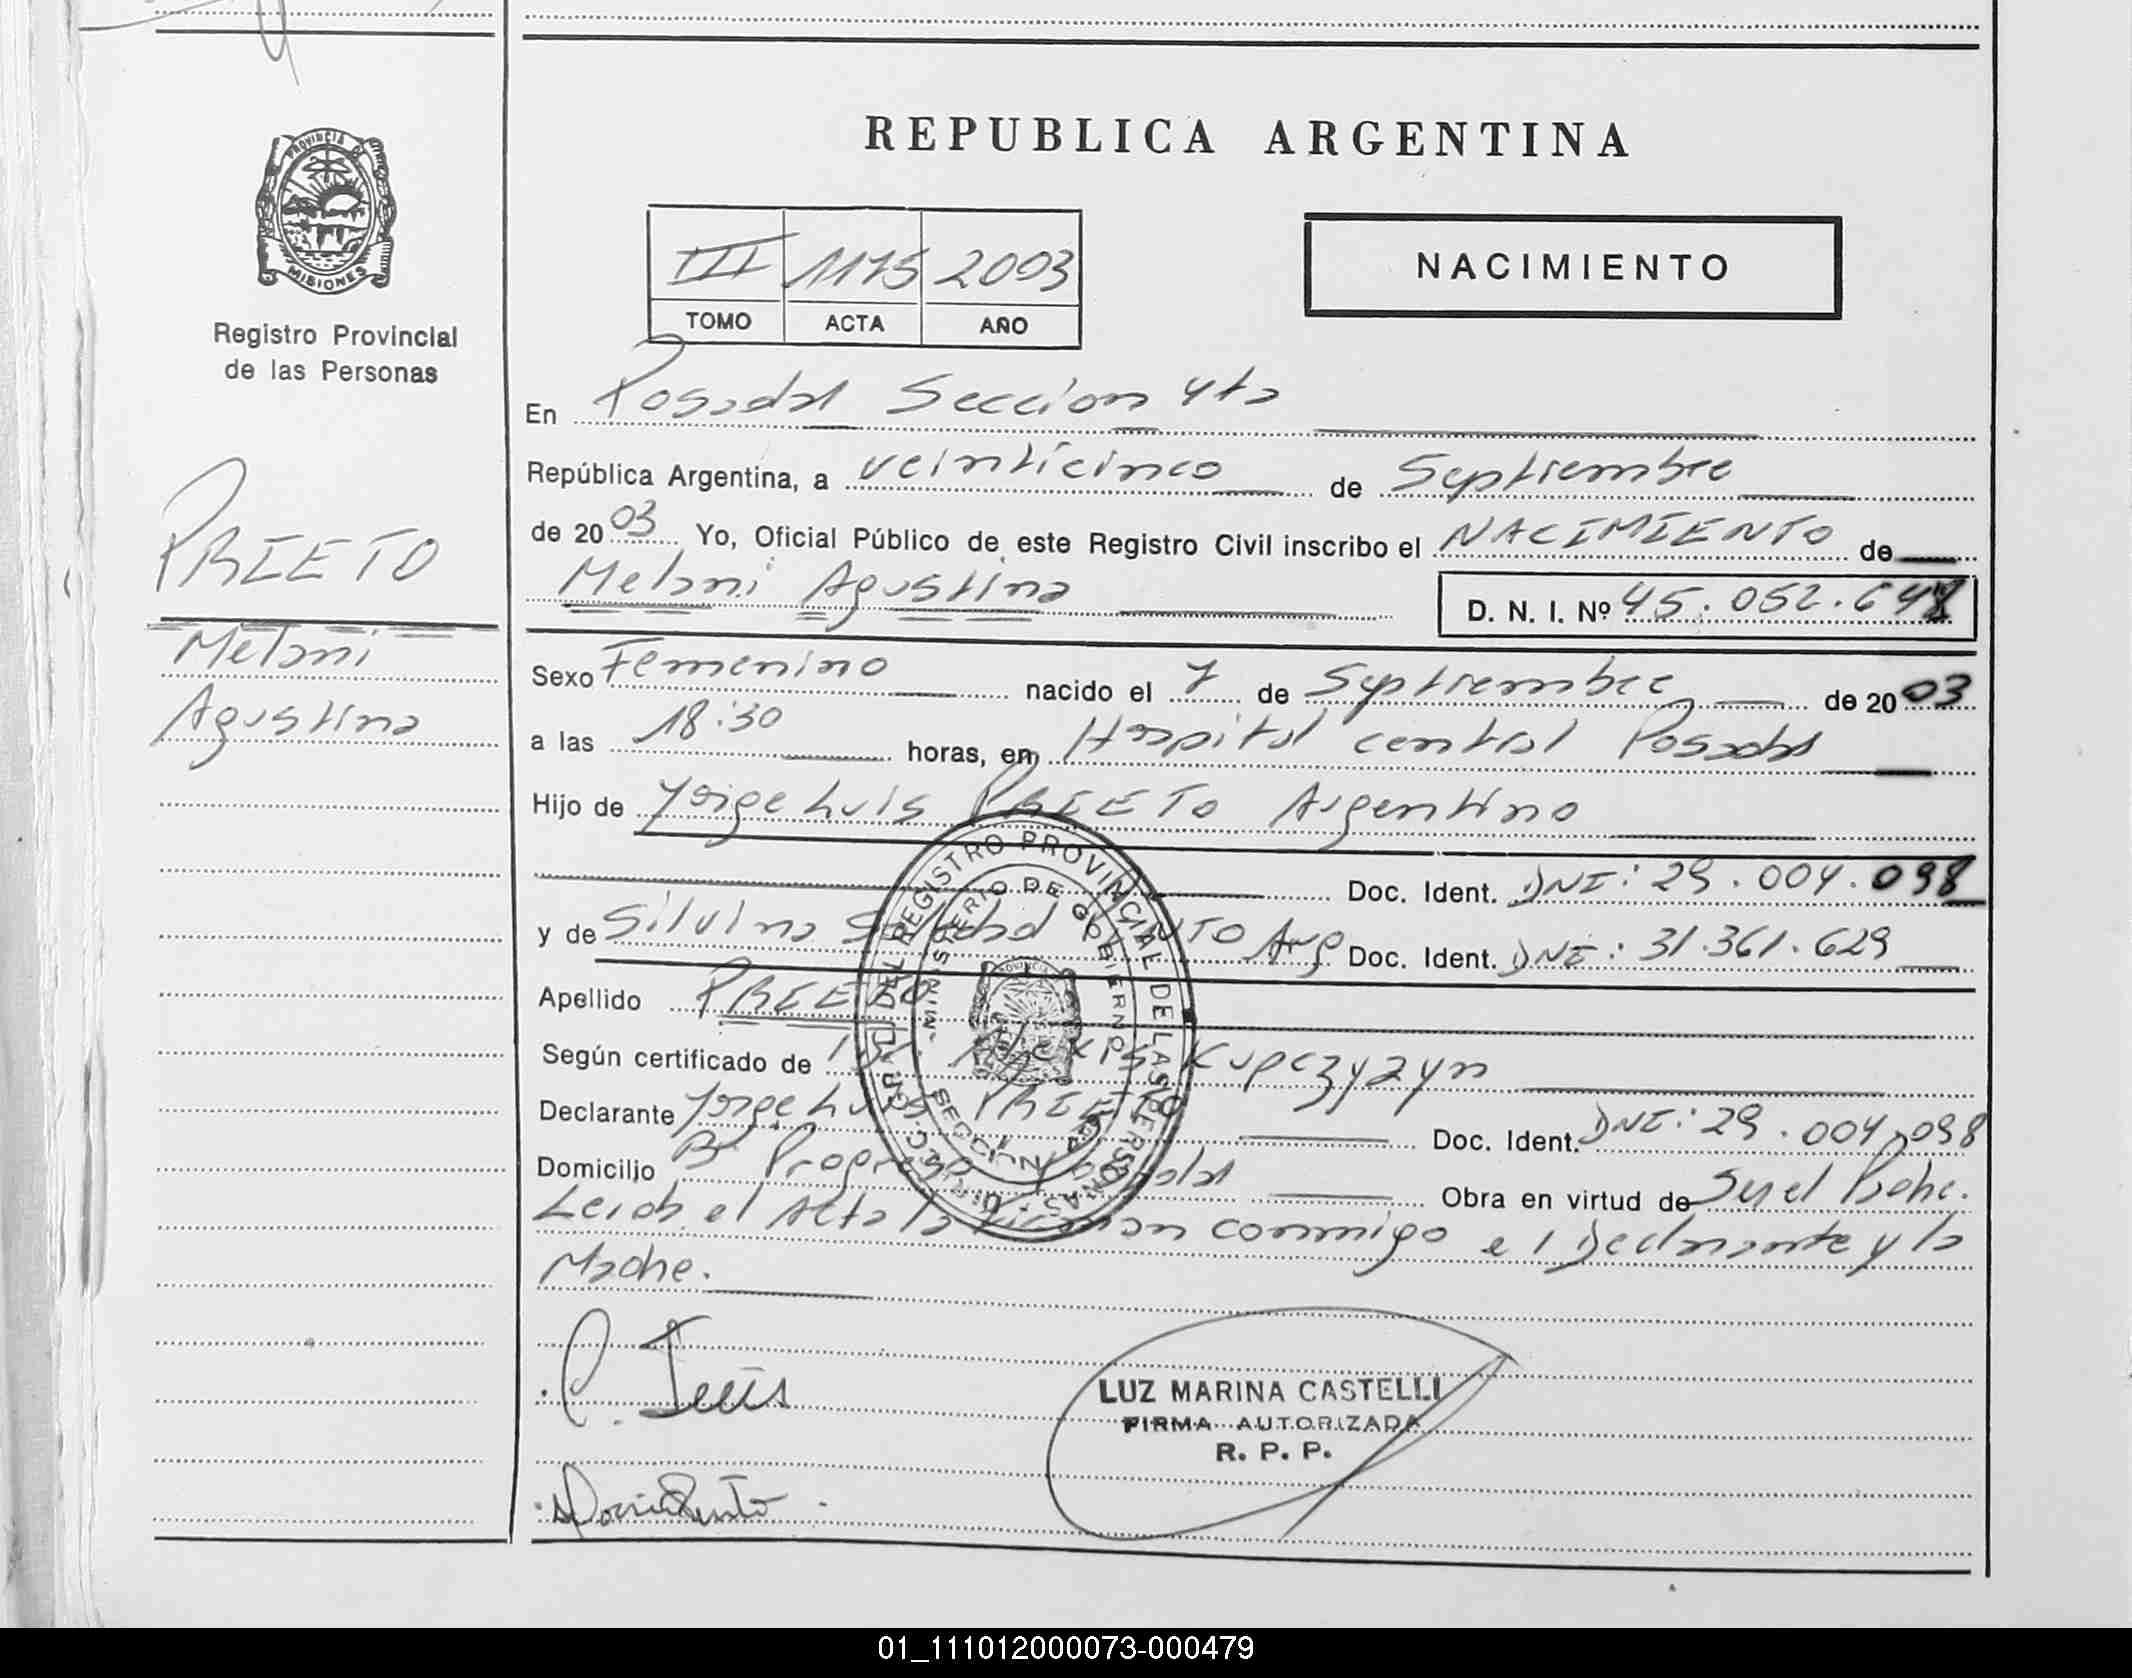 REPUBLICA ARGENTINA
PROVINCIA DE
MISIONES
Registro Provincial
de las Personas
III 1175 2003
TOMO ACTA AÑO
NACIMIENTO
En Posadas Seccion 4ta
República Argentina, a veinticinco de Septiembre
de 2003 Yo, Oficial Público de este Registro Civil inscribo el NACIMIENTO de
Melani Agustina D. N. I. Nº 45.052.648
PRIETO
Melani
Agustina
Sexo Femenino nacido el 7 de Septiembre de 2003
a las 18:30 horas, en Hospital central Posadas
Hijo de Jorge Luis PRIETO Argentino
Doc. Ident. DNI: 29.004.098
y de Silvina Arg Doc. Ident. DNI: 31.361.629
Apellido PRIETO
Según certificado de Kupczyzyn
Declarante Jorge Luis PRIETO Doc. Ident. DNI: 29.004.098
Domicilio Bº Progreso Posadas Obra en virtud de Ser el Padre.
Leida el Acta la Firman conmigo el Declarante y la
Madre.
REGISTRO PROVINCIAL DE LAS PERSONAS
MINISTERIO DE GOBIERNO
SECCION
P. Luis
LUZ MARINA CASTELLI
FIRMA AUTORIZADA
R. P. P.
01_111012000073-000479